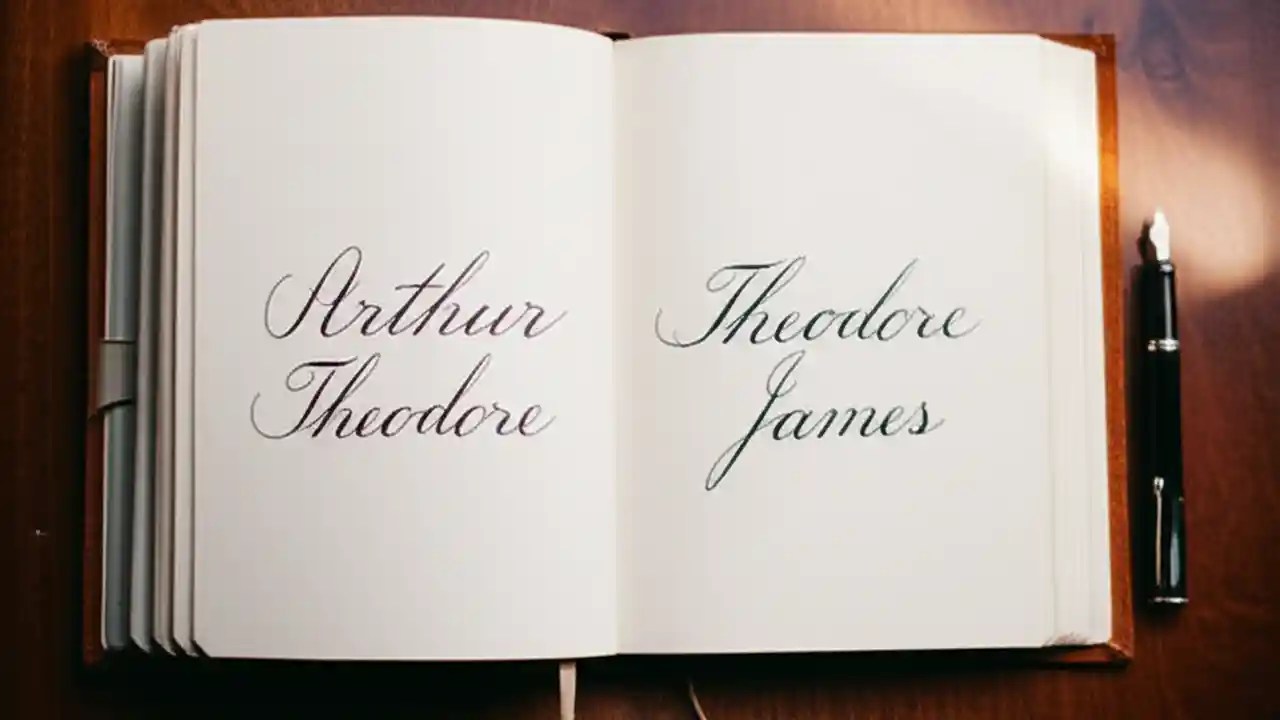 Arthur
Theodore
Theodore
James